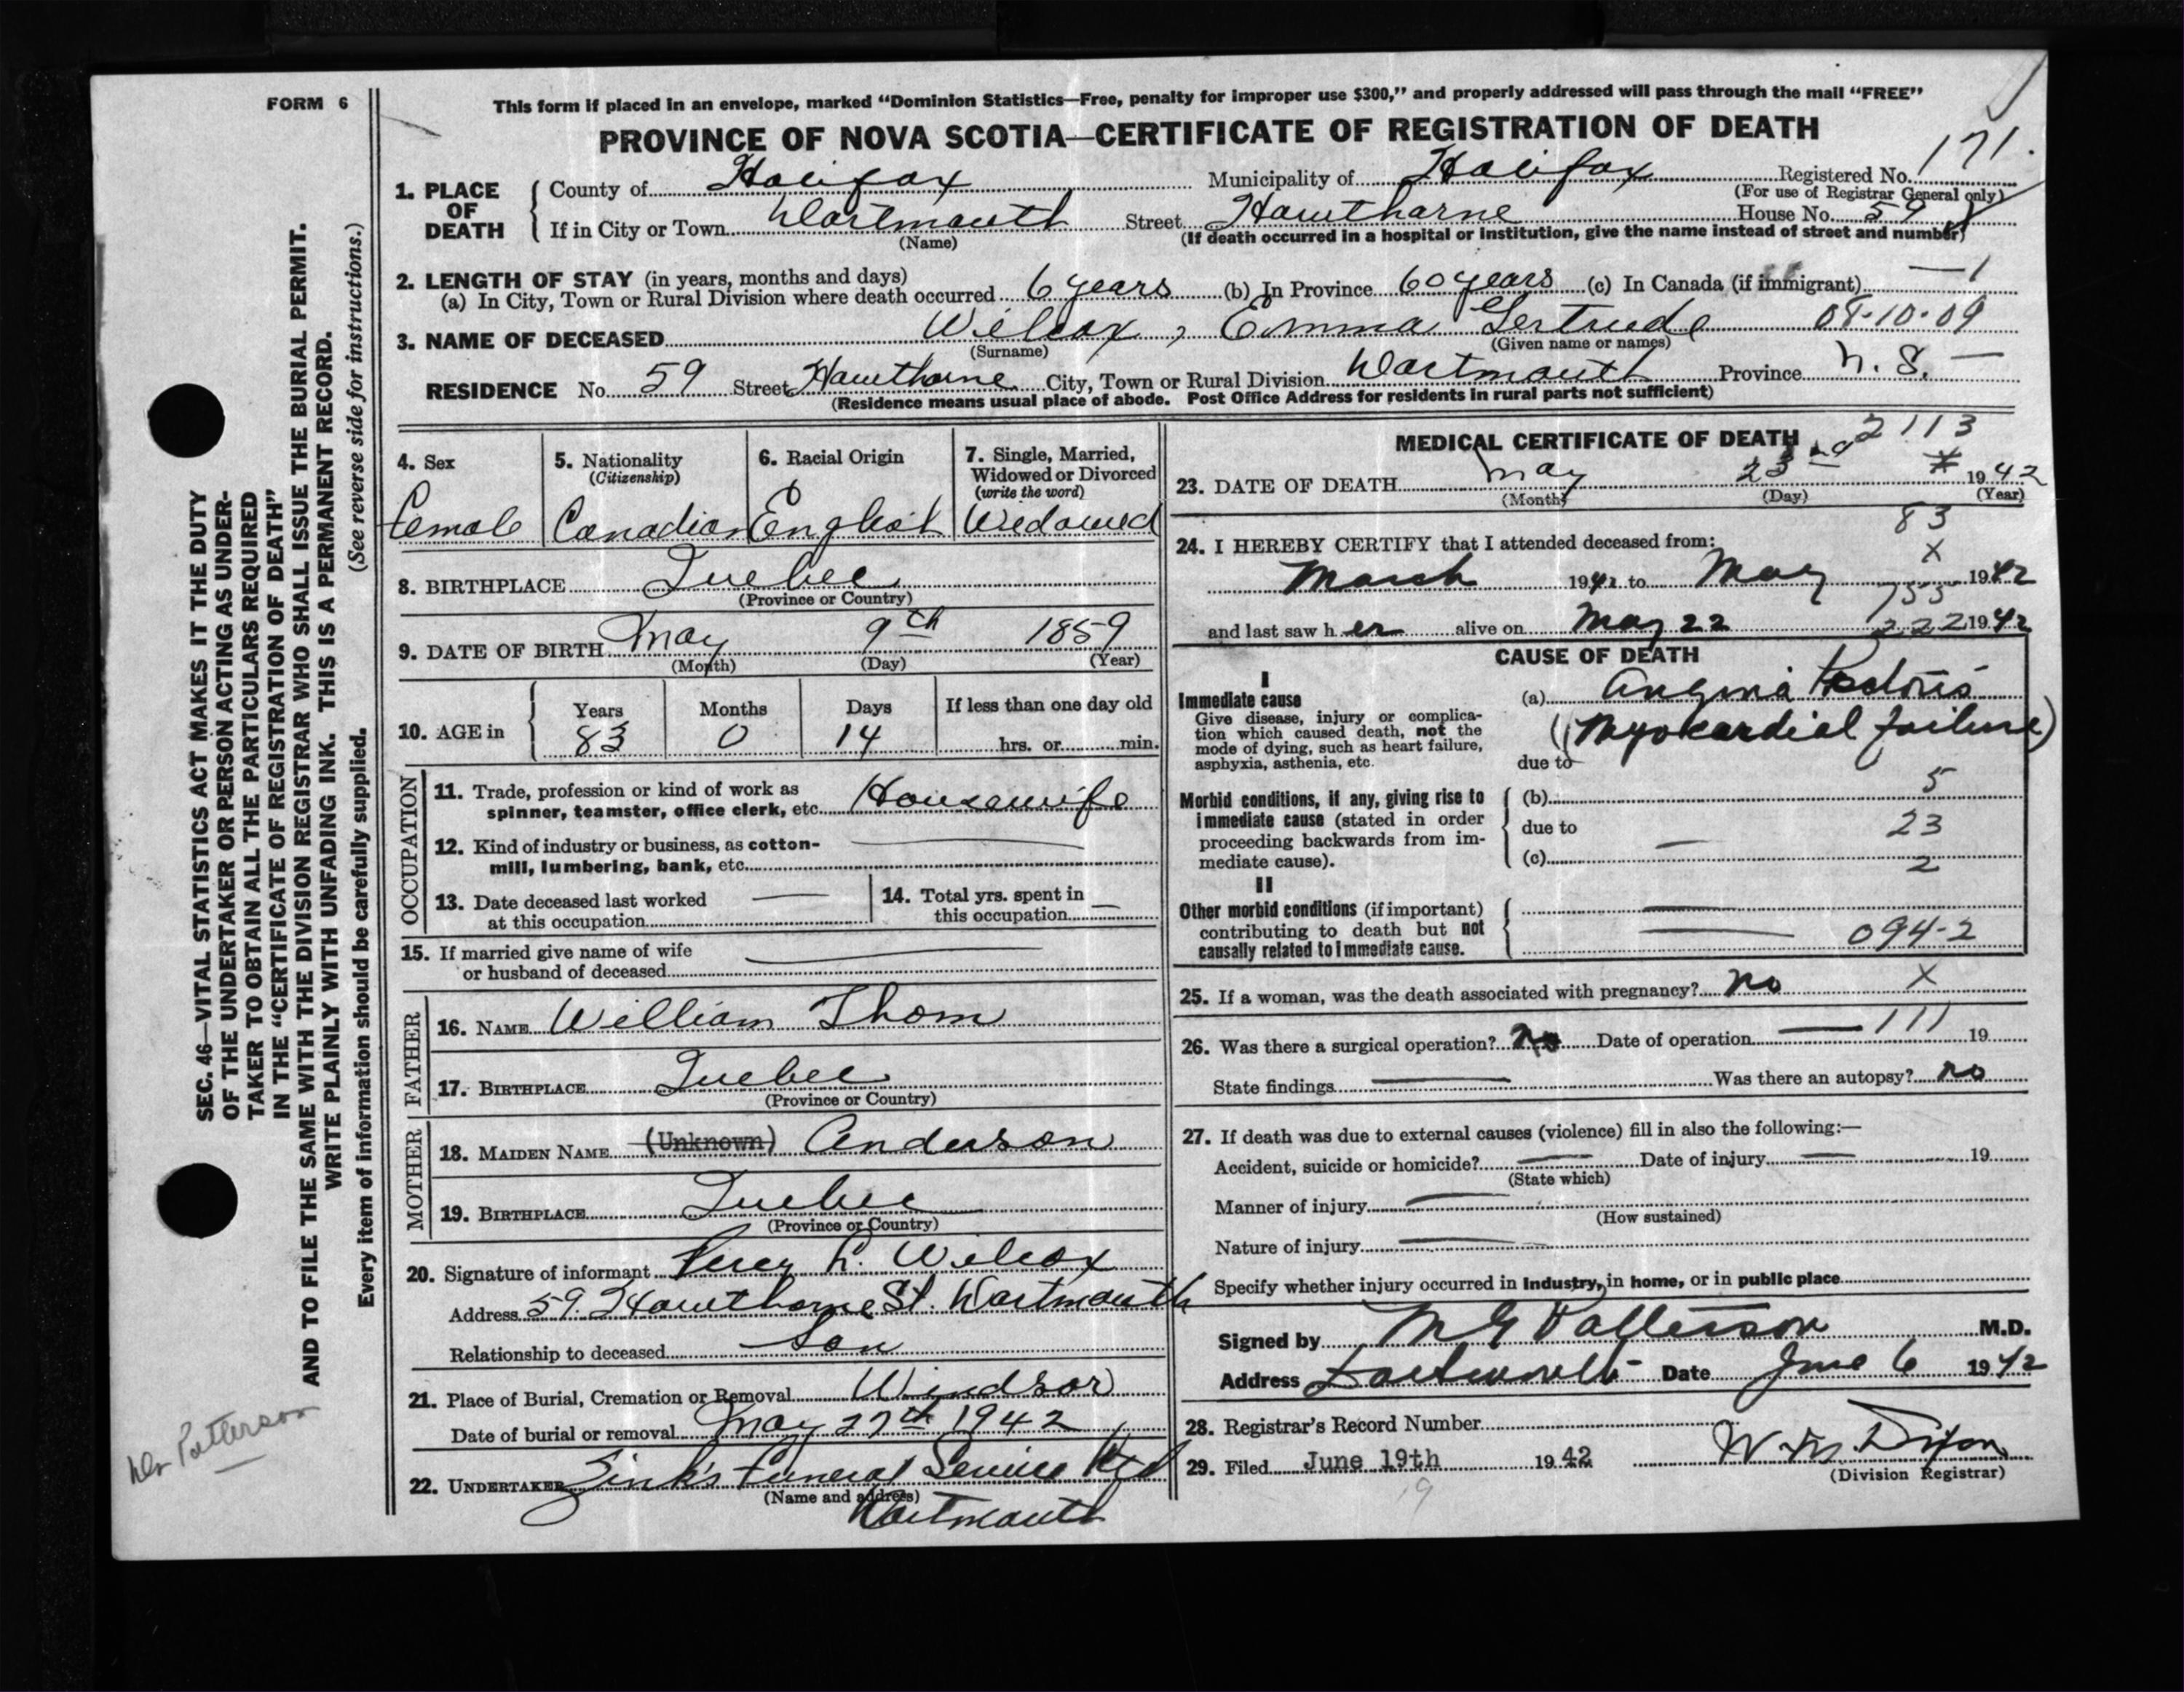 FORM 6
This form if placed in an envelope, marked “Dominion Statistics—Free, penalty for improper use $300,” and properly addressed will pass through the mail “FREE”
PROVINCE OF NOVA SCOTIA—CERTIFICATE OF REGISTRATION OF DEATH
1. PLACE OF DEATH
County of Halifax Municipality of Halifax Registered No. 171.
(For use of Registrar General only)
If in City or Town Dartmouth Street Hawthorne House No. 59
(Name) (If death occurred in a hospital or institution, give the name instead of street and number)
2. LENGTH OF STAY (in years, months and days)
(a) In City, Town or Rural Division where death occurred 6 years (b) In Province 60 years (c) In Canada (if immigrant) — 1
3. NAME OF DECEASED Wilcox, Emma Gertrude 08-10-09
(Surname) (Given name or names)
RESIDENCE No. 59 Street Hawthorne City, Town or Rural Division Dartmouth Province N. S. —
(Residence means usual place of abode. Post Office Address for residents in rural parts not sufficient)
4. Sex
Female
5. Nationality
(Citizenship)
Canadian
6. Racial Origin
English
7. Single, Married,
Widowed or Divorced
(write the word)
Widowed
8. BIRTHPLACE Quebec
(Province or Country)
9. DATE OF BIRTH May 9th 1859
(Month) (Day) (Year)
10. AGE in
Years Months Days If less than one day old
83 0 14 hrs. or min.
OCCUPATION
11. Trade, profession or kind of work as
spinner, teamster, office clerk, etc. Housewife
12. Kind of industry or business, as cotton-
mill, lumbering, bank, etc. —
13. Date deceased last worked
at this occupation —
14. Total yrs. spent in
this occupation —
15. If married give name of wife
or husband of deceased —
FATHER
16. NAME William Thom
17. BIRTHPLACE Quebec
(Province or Country)
MOTHER
18. MAIDEN NAME (Unknown) Anderson
19. BIRTHPLACE Quebec
(Province or Country)
20. Signature of informant Percy L. Wilcox
Address 59 Hawthorne St. Dartmouth
Relationship to deceased Son
21. Place of Burial, Cremation or Removal Windsor
Date of burial or removal May 27th 1942
22. UNDERTAKER Zink's Funeral Service Ltd
(Name and address)
Dartmouth
MEDICAL CERTIFICATE OF DEATH 2113
23. DATE OF DEATH May 23rd 1942
(Month) (Day) (Year)
83
24. I HEREBY CERTIFY that I attended deceased from:
X
March 1942 to May 1942
155
and last saw her alive on May 22 222 1942
CAUSE OF DEATH
I
Immediate cause
Give disease, injury or complica-
tion which caused death, not the
mode of dying, such as heart failure,
asphyxia, asthenia, etc.
(a) Angina Pectoris
(Myocardial failure)
due to
Morbid conditions, if any, giving rise to
immediate cause (stated in order
proceeding backwards from im-
mediate cause).
(b) 5
due to 23
(c) — 2
II
Other morbid conditions (if important)
contributing to death but not
causally related to immediate cause.
—
— 094-2
25. If a woman, was the death associated with pregnancy? No X
26. Was there a surgical operation? No Date of operation — 111 19
State findings — Was there an autopsy? no
27. If death was due to external causes (violence) fill in also the following:—
Accident, suicide or homicide? — Date of injury — 19
(State which)
Manner of injury —
(How sustained)
Nature of injury —
Specify whether injury occurred in Industry, in home, or in public place
Signed by M G Patterson M.D.
Address Dartmouth Date June 6 1942
28. Registrar's Record Number
29. Filed June 19th 1942
(Division Registrar)
19
SEC. 46—VITAL STATISTICS ACT MAKES IT THE DUTY
OF THE UNDERTAKER OR PERSON ACTING AS UNDER-
TAKER TO OBTAIN ALL THE PARTICULARS REQUIRED
IN THE “CERTIFICATE OF REGISTRATION OF DEATH”
AND TO FILE THE SAME WITH THE DIVISION REGISTRAR WHO SHALL ISSUE THE BURIAL PERMIT.
WRITE PLAINLY WITH UNFADING INK. THIS IS A PERMANENT RECORD.
Every item of information should be carefully supplied. (See reverse side for instructions.)
Dr Patterson